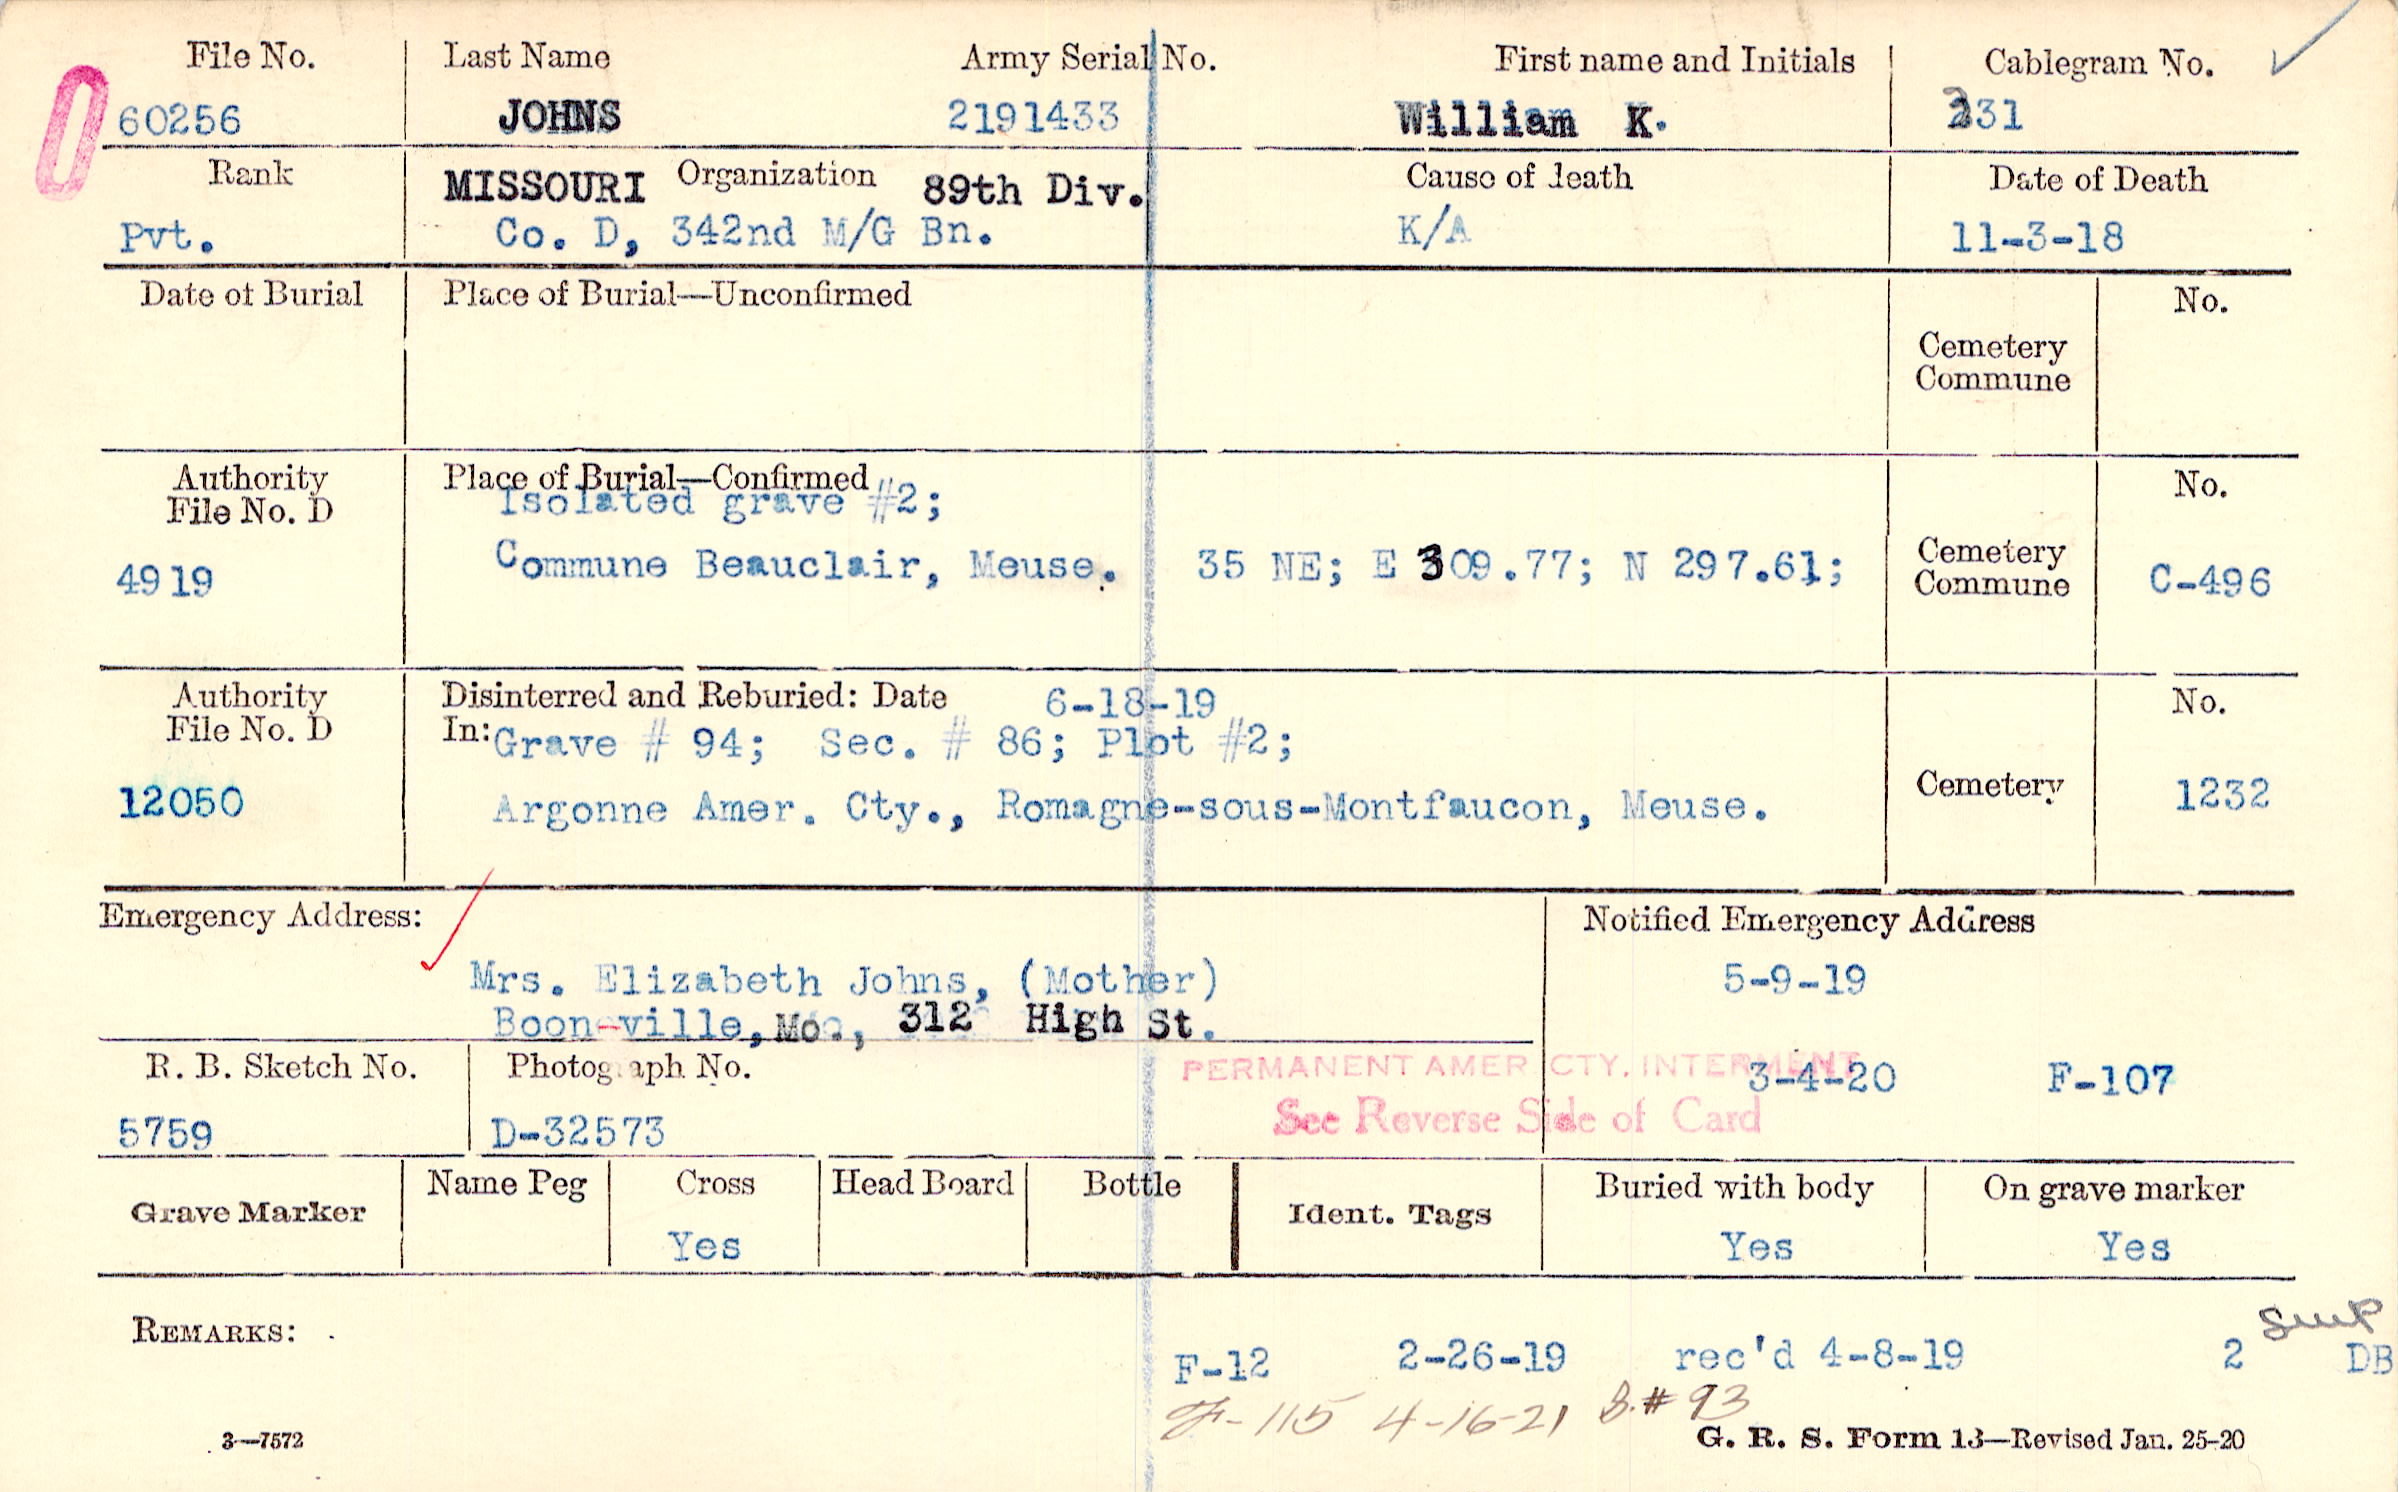 File No. Last Name Army Serial No. First name and Initials Cablegram No.
60256 JOHNS 2191433 William K. 231
Rank MISSOURI Organization 89th Div. Cause of death Date of Death
Pvt. Co. D, 342nd M/G Bn. K/A 11-3-18
Date of Burial Place of Burial—Unconfirmed No.
Cemetery
Commune
Authority Place of Burial—Confirmed No.
File No. D Isolated grave #2;
4919 Commune Beauclair, Meuse. 35 NE; E 309.77; N 297.61; Cemetery
Commune C-496
Authority Disinterred and Reburied: Date 6-18-19 No.
File No. D In: Grave # 94; Sec. # 86; Plot #2;
12050 Argonne Amer. Cty., Romagne-sous-Montfaucon, Meuse. Cemetery 1232
Emergency Address: Notified Emergency Address
Mrs. Elizabeth Johns, (Mother) 5-9-19
Boon-ville, Mo., 312 High St.
R. B. Sketch No. Photograph No. PERMANENT AMER. CTY. INTERMENT 3-4-20 F-107
5759 D-32573 See Reverse Side of Card
Grave Marker Name Peg Cross Head Board Bottle Ident. Tags Buried with body On grave marker
Yes Yes Yes
REMARKS:
F-12 2-26-19 rec'd 4-8-19 2 DB
F-115 4-16-21 S.# 93
3—7572 G. R. S. Form 13—Revised Jan. 25-20